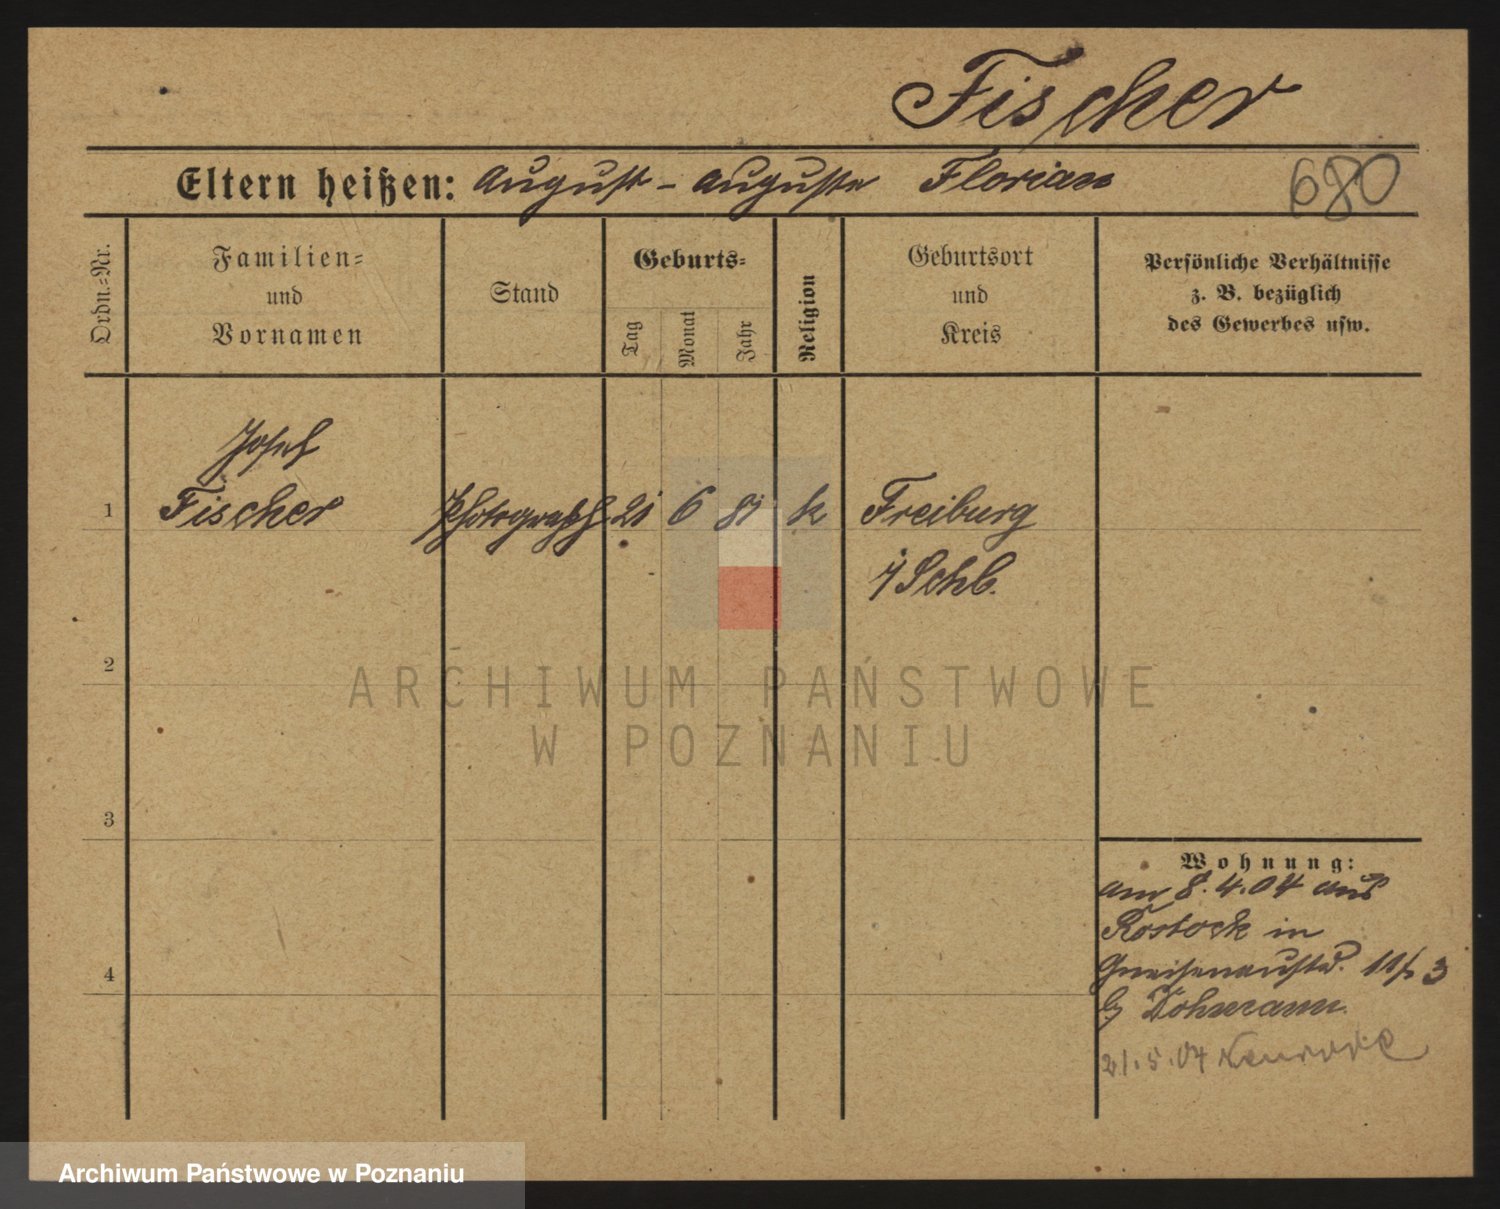 Fischer
Eltern heißen: August – Auguste Florian
680
Ordn.-Nr.
Familien-
und
Vornamen
Stand
Geburts-
Tag
Monat
Jahr
Religion
Geburtsort
und
Kreis
Persönliche Verhältnisse
z. B. bezüglich
des Gewerbes usw.
Josef
1 Fischer Photograph 21 6 81 k Freiburg
i/Schl.
2
ARCHIWUM PAŃSTWOWE
W POZNANIU
3
Wohnung:
am 8.4.04 aus
Rostock in
Gneisenaustr. 11/3
b/
4
21.5.04
Archiwum Państwowe w Poznaniu